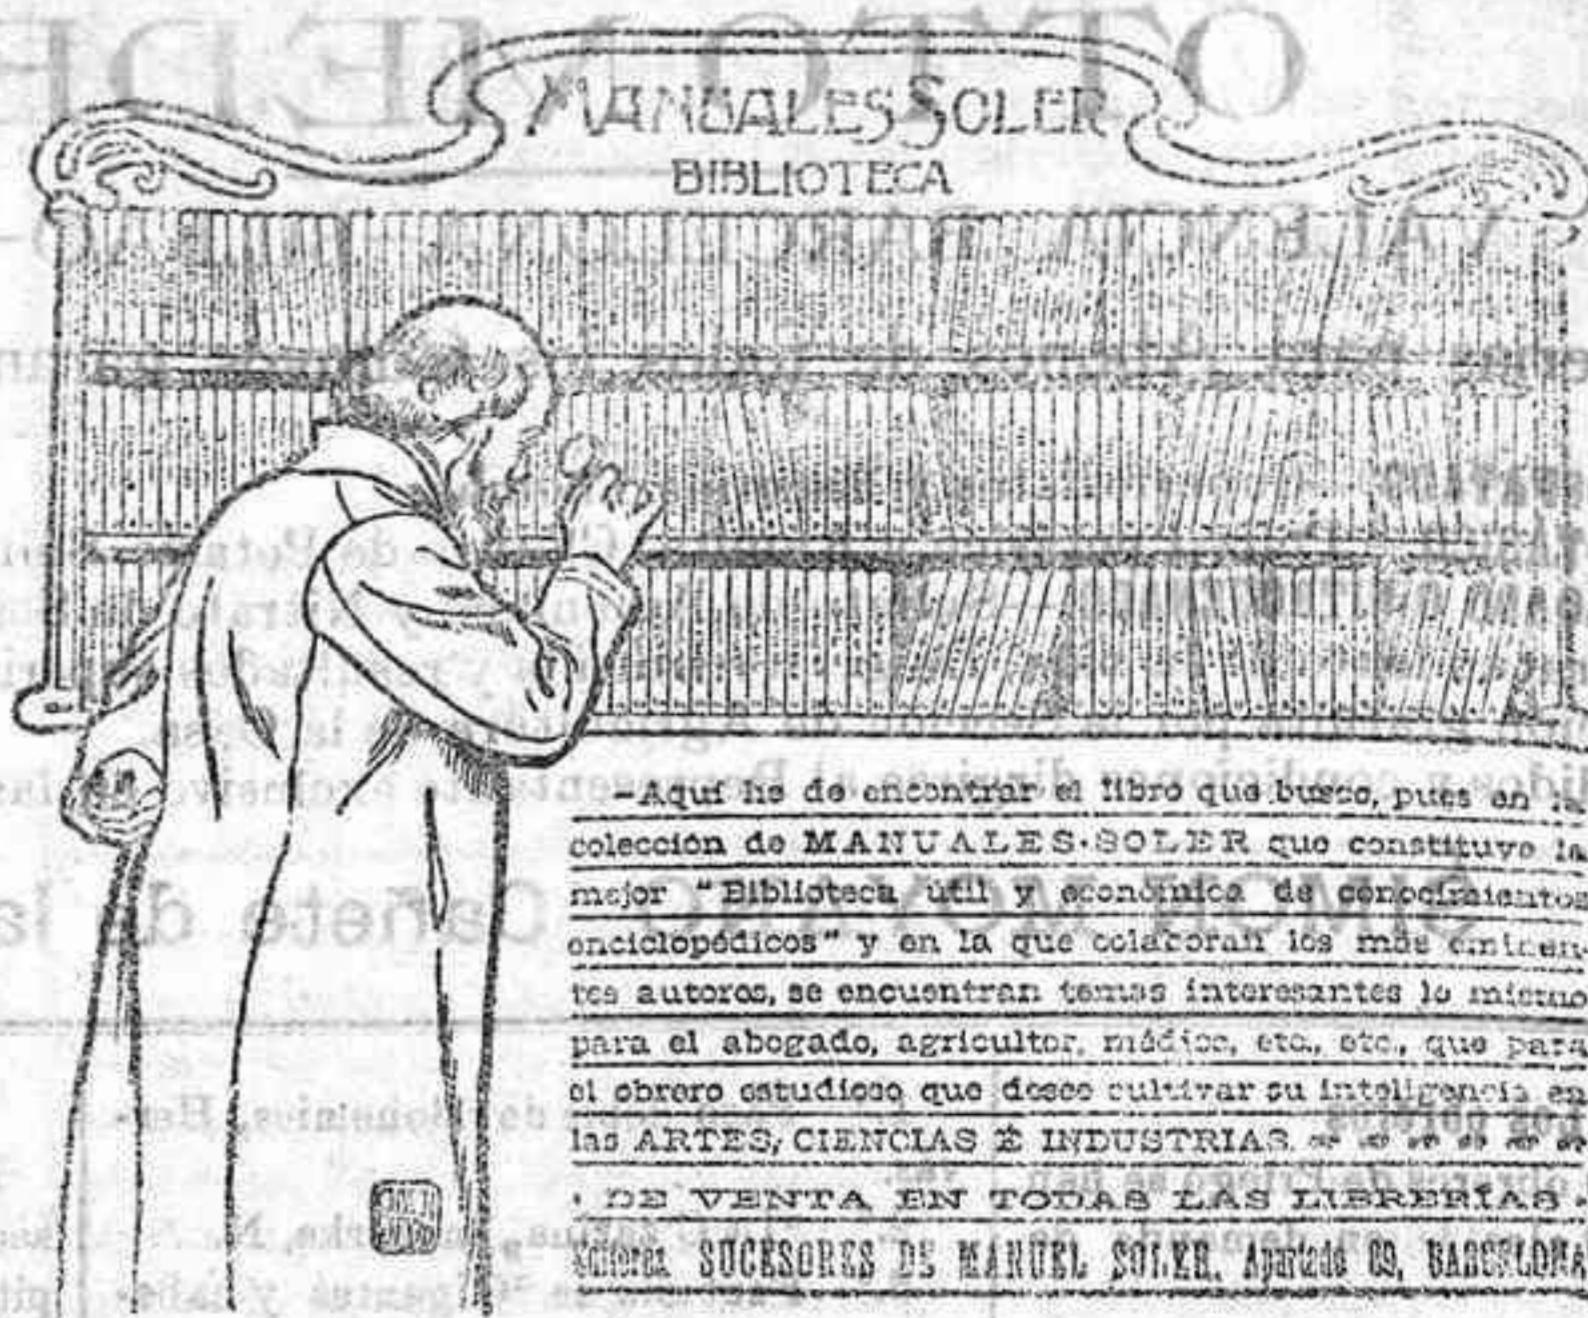 MANUALES SOLER
BIBLIOTECA
—Aquí he de encontrar el libro que busco, pues en la
colección de MANUALES·SOLER que constituye la
mejor "Biblioteca útil y económica de conocimientos
enciclopédicos" y en la que colaboran los más eminen-
tes autores, se encuentran temas interesantes lo mismo
para el abogado, agricultor, médico, etc., etc., que para
el obrero estudioso que desee cultivar su inteligencia en
las ARTES, CIENCIAS É INDUSTRIAS.
· DE VENTA EN TODAS LAS LIBRERÍAS ·
Editores SUCESORES DE MANUEL SOLER, Apartado 89, BARCELONA